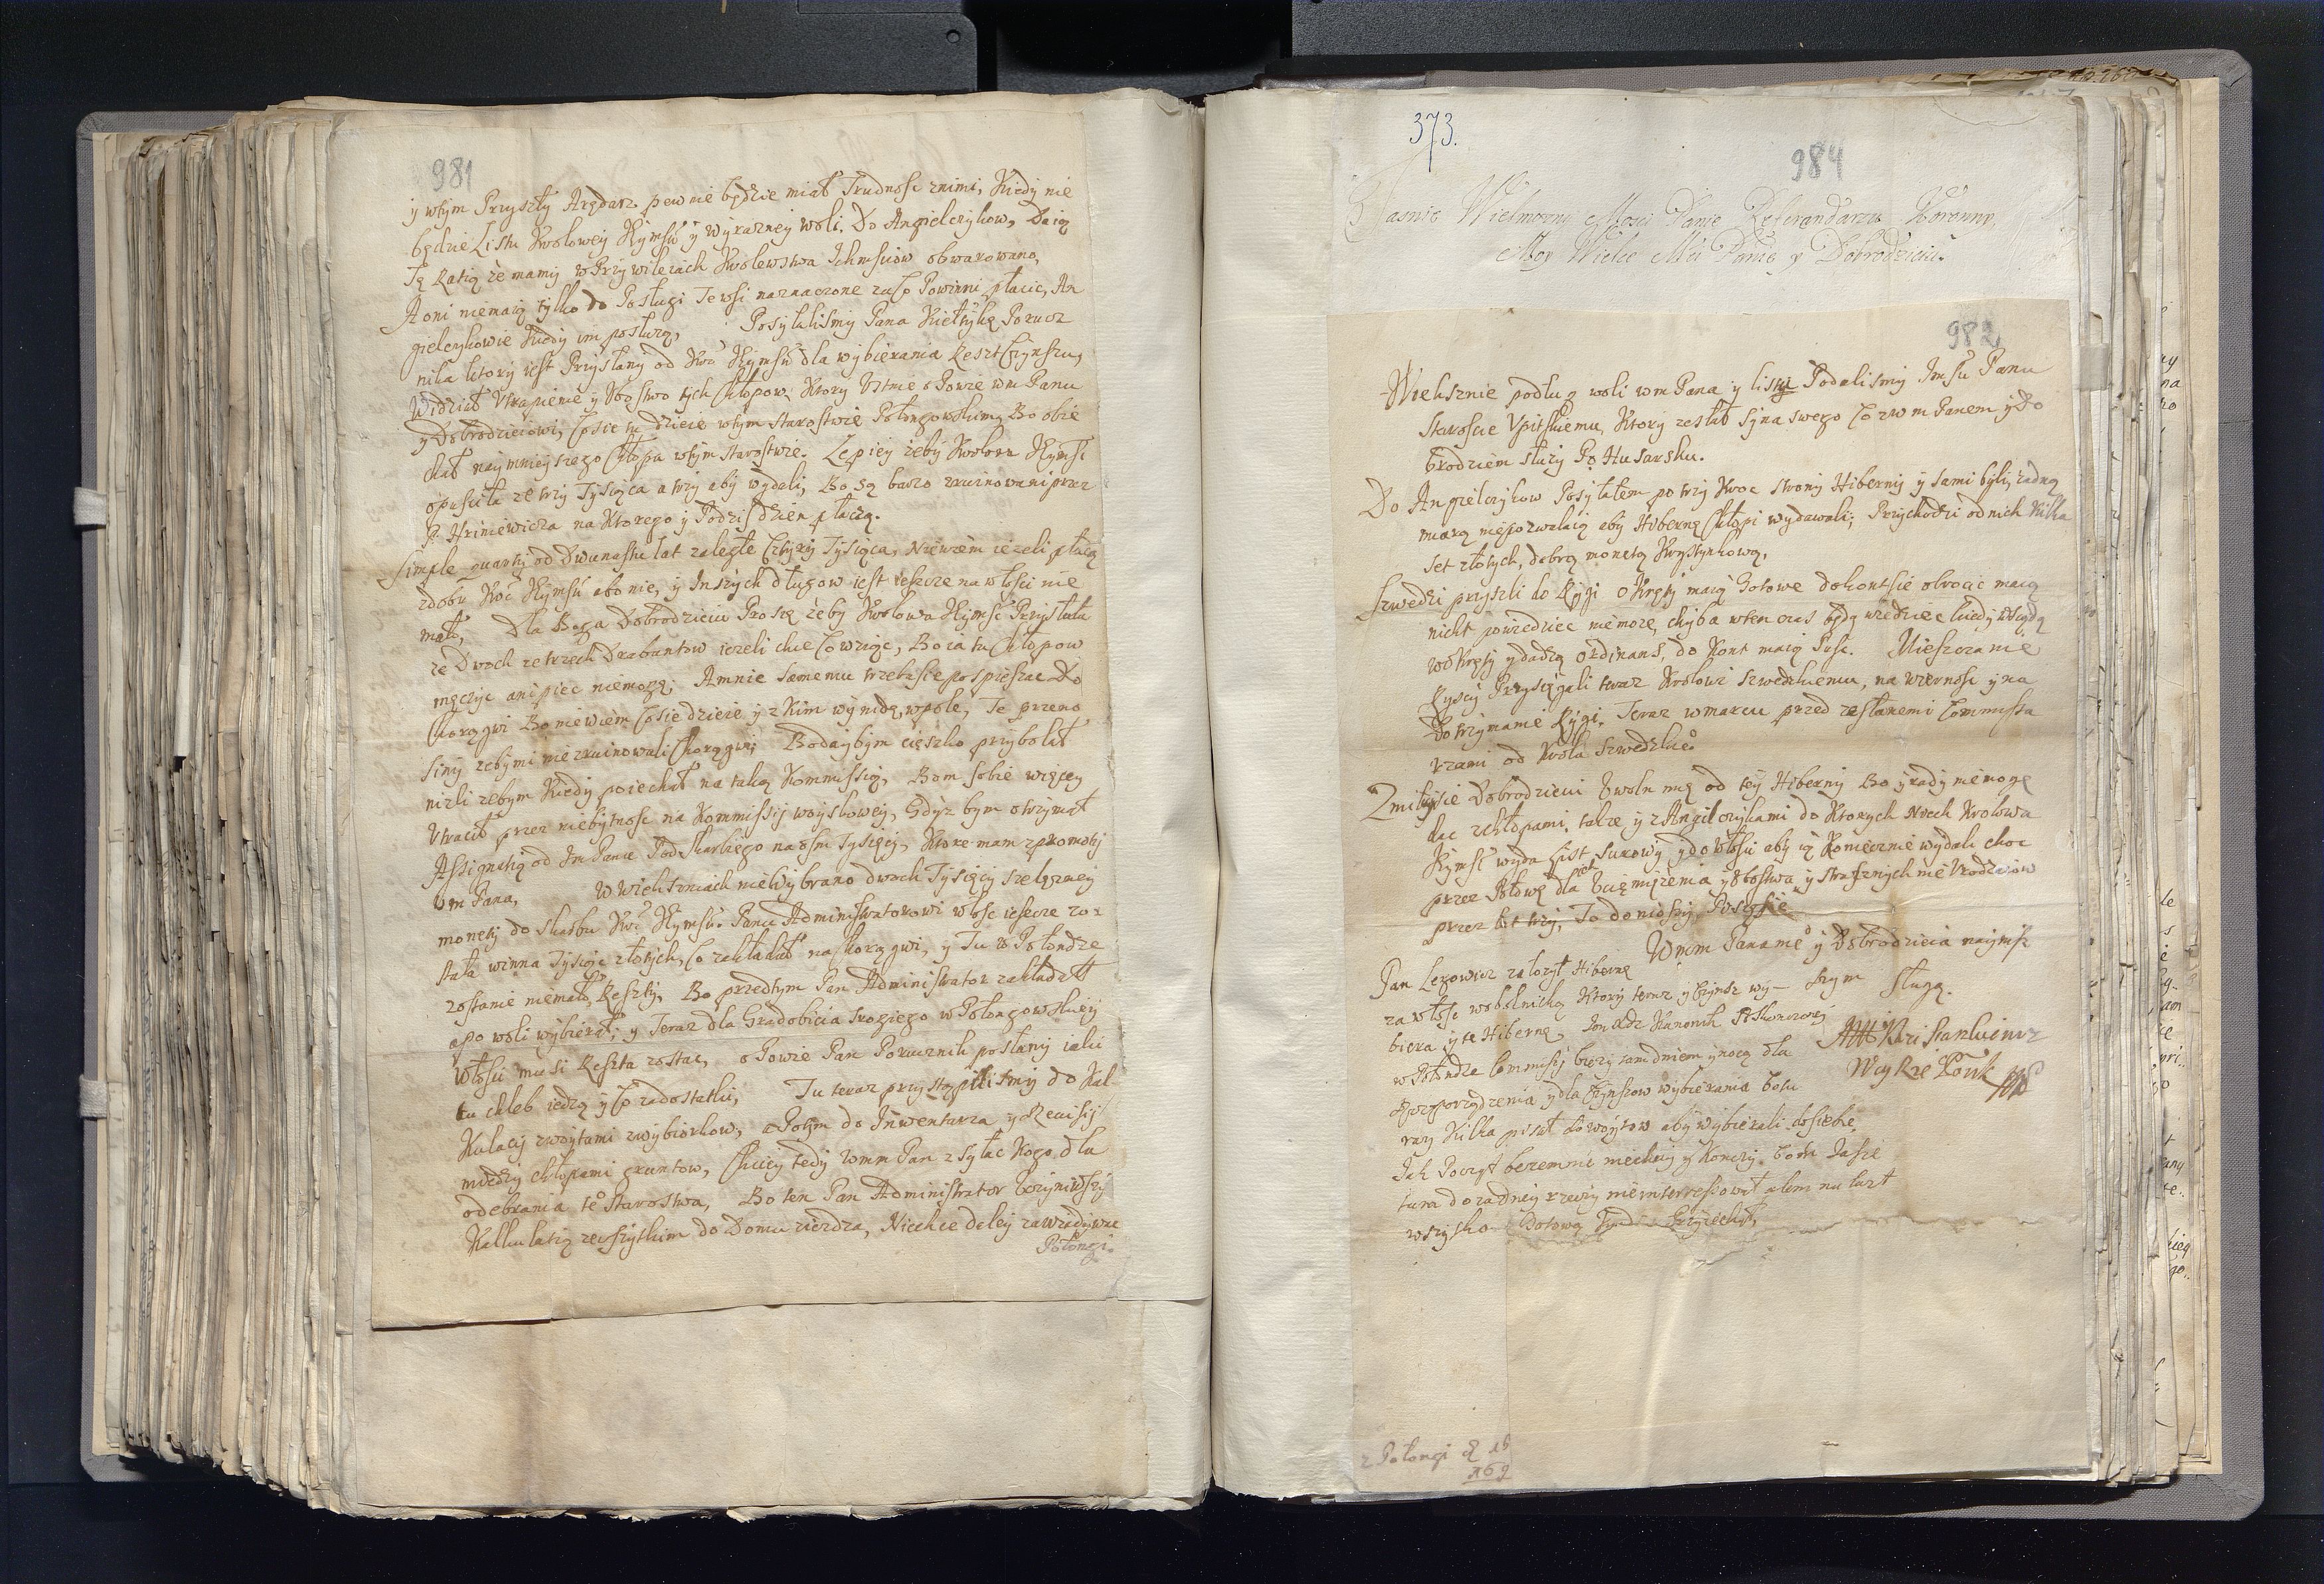 981
y wtym Przyszły Arędarz pewnie będzie miał Trudnosc znimi, Kiedy nie
będzie Listu Krolowey Jeymsci y wyrazney woli. Do Angielczykow, Daią
Tę Ratią że mamy w Przywileiach Krolewstwa Ichmsciow obwarowano,
A oni niemaią tylko do Posługi Te wsi naznaczone za Co Powinni płacic, An
gielczykowie kiedy im posłuzą, Posyłalismy Pana Porucz
nika ktory iest Przysłany od Kro Jeymsci dla wybierania Reszt Czynszu,
Widział Utrapienie y Ubostwo tych Chłopow, Ktory Ustnie oPowie wm Panu
y Dobrodzieiowi, Co sie tu dzieie wtym Starostwie Połongowskim, Bo obie
chał naymnieyszego Chłopa wtym Starostwie. Lepiey zeby Krolowa Jeymsc
opusciła ze trzy Tysiąca a trzy aby wydali, Bo są barzo zruinowani przez
P. Hriniewicza na Ktorego y Podzis dzien płaczą.
Simple quarty od Dwunastu lat zaległe Cztyry Tysiąca, Niewiem iezeli płacą
zdobr Jeymsci abo nie, y Inszych długow iest ieszcze na włosci nie
mało, Dla Boga Dobrodzieiu Proszę zeby Krolowa Jeymsc Przysłała
ze Dwoch ze trzech Drabantow iezeli chce Co wziąc, Bo ia tu Chłopow
męczyc ani piec niemogę, Amnie samemu trzeba sie pospieszac Do
Chorągwi Bo niewiem Co sie dzieie y z Kim wynidą w pole, Te przeno
siny zeby mi nie zruinowali Chorągwi, Bodaybym cięszko przybolał
nizli zebym Kiedy poiechał na taką Kommissią, Bom sobie więcey
Utracił przez niebytnosc na Kommissiy woyskowey, Gdyz bym otrzymał
Assignatią od Im Pana Podskarbiego na osm Tysięcy, Ktore mam z promotiy
Wm Pana, W Wiekszniach nie Wybrano dwoch Tysięcy szelązney
monety do Skarbu Jeymsci. Panu Administratorowi włosc ieszcze zo-
stała winna Tysiąc złotych, Co zakładał na Chorągwi, y Tu w Połondze
zostanie niemało Reszty, Bo przedtym Pan Administrator zakładał
a po woli wybierał; y Teraz dla Gradobicia srogiego w Połongowskiey
Włosci musi Reszta zostac, oPowie Pan Porucznik posłany iaki
tu chleb iedzą y Co zadostatki, Tu teraz przystąpilismy do Kal
kulaciy zwoytami zwybiorkow, a Potym do Inwentarza y Rewisiy
miedzy chłopami gruntow, Chciey tedy wmm Pan zsyłac Kogo dla
odebrania teo Starostwa, Bo ten Pan Administrator Uczyniwszy
Kalkulatią zewszytkim do Domu ziezdza, Niechce daley zawiadywac
Połongi.
373.
984
Jasnie Wielmozny Mosci Panie Referendarzu Koronny,
Moy Wielce Mci Panie y Dobrodzieiu.
982
Wieksznie podług woli wm Pana y listu Podalismy Imsci Panu
Staroscie Upitskiemu, Ktory zesłał syna swego Co zwm Panem y Do
brodziem słuzy Po Husarsku.
Do Angielczykow Posyłałem po trzy Kroc strony Hiberny y sami byli, zadną
miarą niepozwalaią aby Hibernę Chłopi wydawali; Przychodzi od nich kilka
set złotych, dobrą monetą Krystynkową,
Szwedzi przyszli do Rygi Okręty maią Gotowe dokont sie obrocic maią
nicht powiedziec niemoze, chyba wten czas będą wiedziec kiedy wsiędą
w Okręty y dadzą Ordinans, do Kont maią Pusc. Mieszczanie
Ryscy Przysięgali teraz Krolowi Szwedzkiemu, na wiernosc y na
Dotrzymanie Rygi, Teraz w marcu przed zesłanemi Commissa
rzami od Krola Szwedzkieo
Zmiłuysie Dobrodzieiu Uwoln mię od tey Hiberny Bo y rady niemogę
dac zchłopami, takze y z Angilczykami do Ktorych Niech Krolowa
Jeymsc wyda List surowy y do Włosci aby ią Koniecznie wydali choc
przez Połowę dla ich Uciemięzenia y Ubostwa y strasznych nieUrodzaiow
przez lat trzy, To doniozszy Piszę sie
Wmm Pana meo y Dobrodzieia naymsz
szym Sługą.
Pan Lezowicz załozył Hibernę
za włosc wobolnicką Ktory teraz y Czynsz wy-
biera y te Hibernę, Im Xdz Kanonik
w Połondze Commisiy bieży sam dniem y nocą dla
Rozporządzenia y dla Czynszow wybierania Bo tu
razy kilka pisał do woytow aby wybierali do siebie,
Jak Począł bezemnie niechay y Konczy. Bo tu
do zadney rzeczy nie interressował alem nalazł
wszytko
z Połongi
169